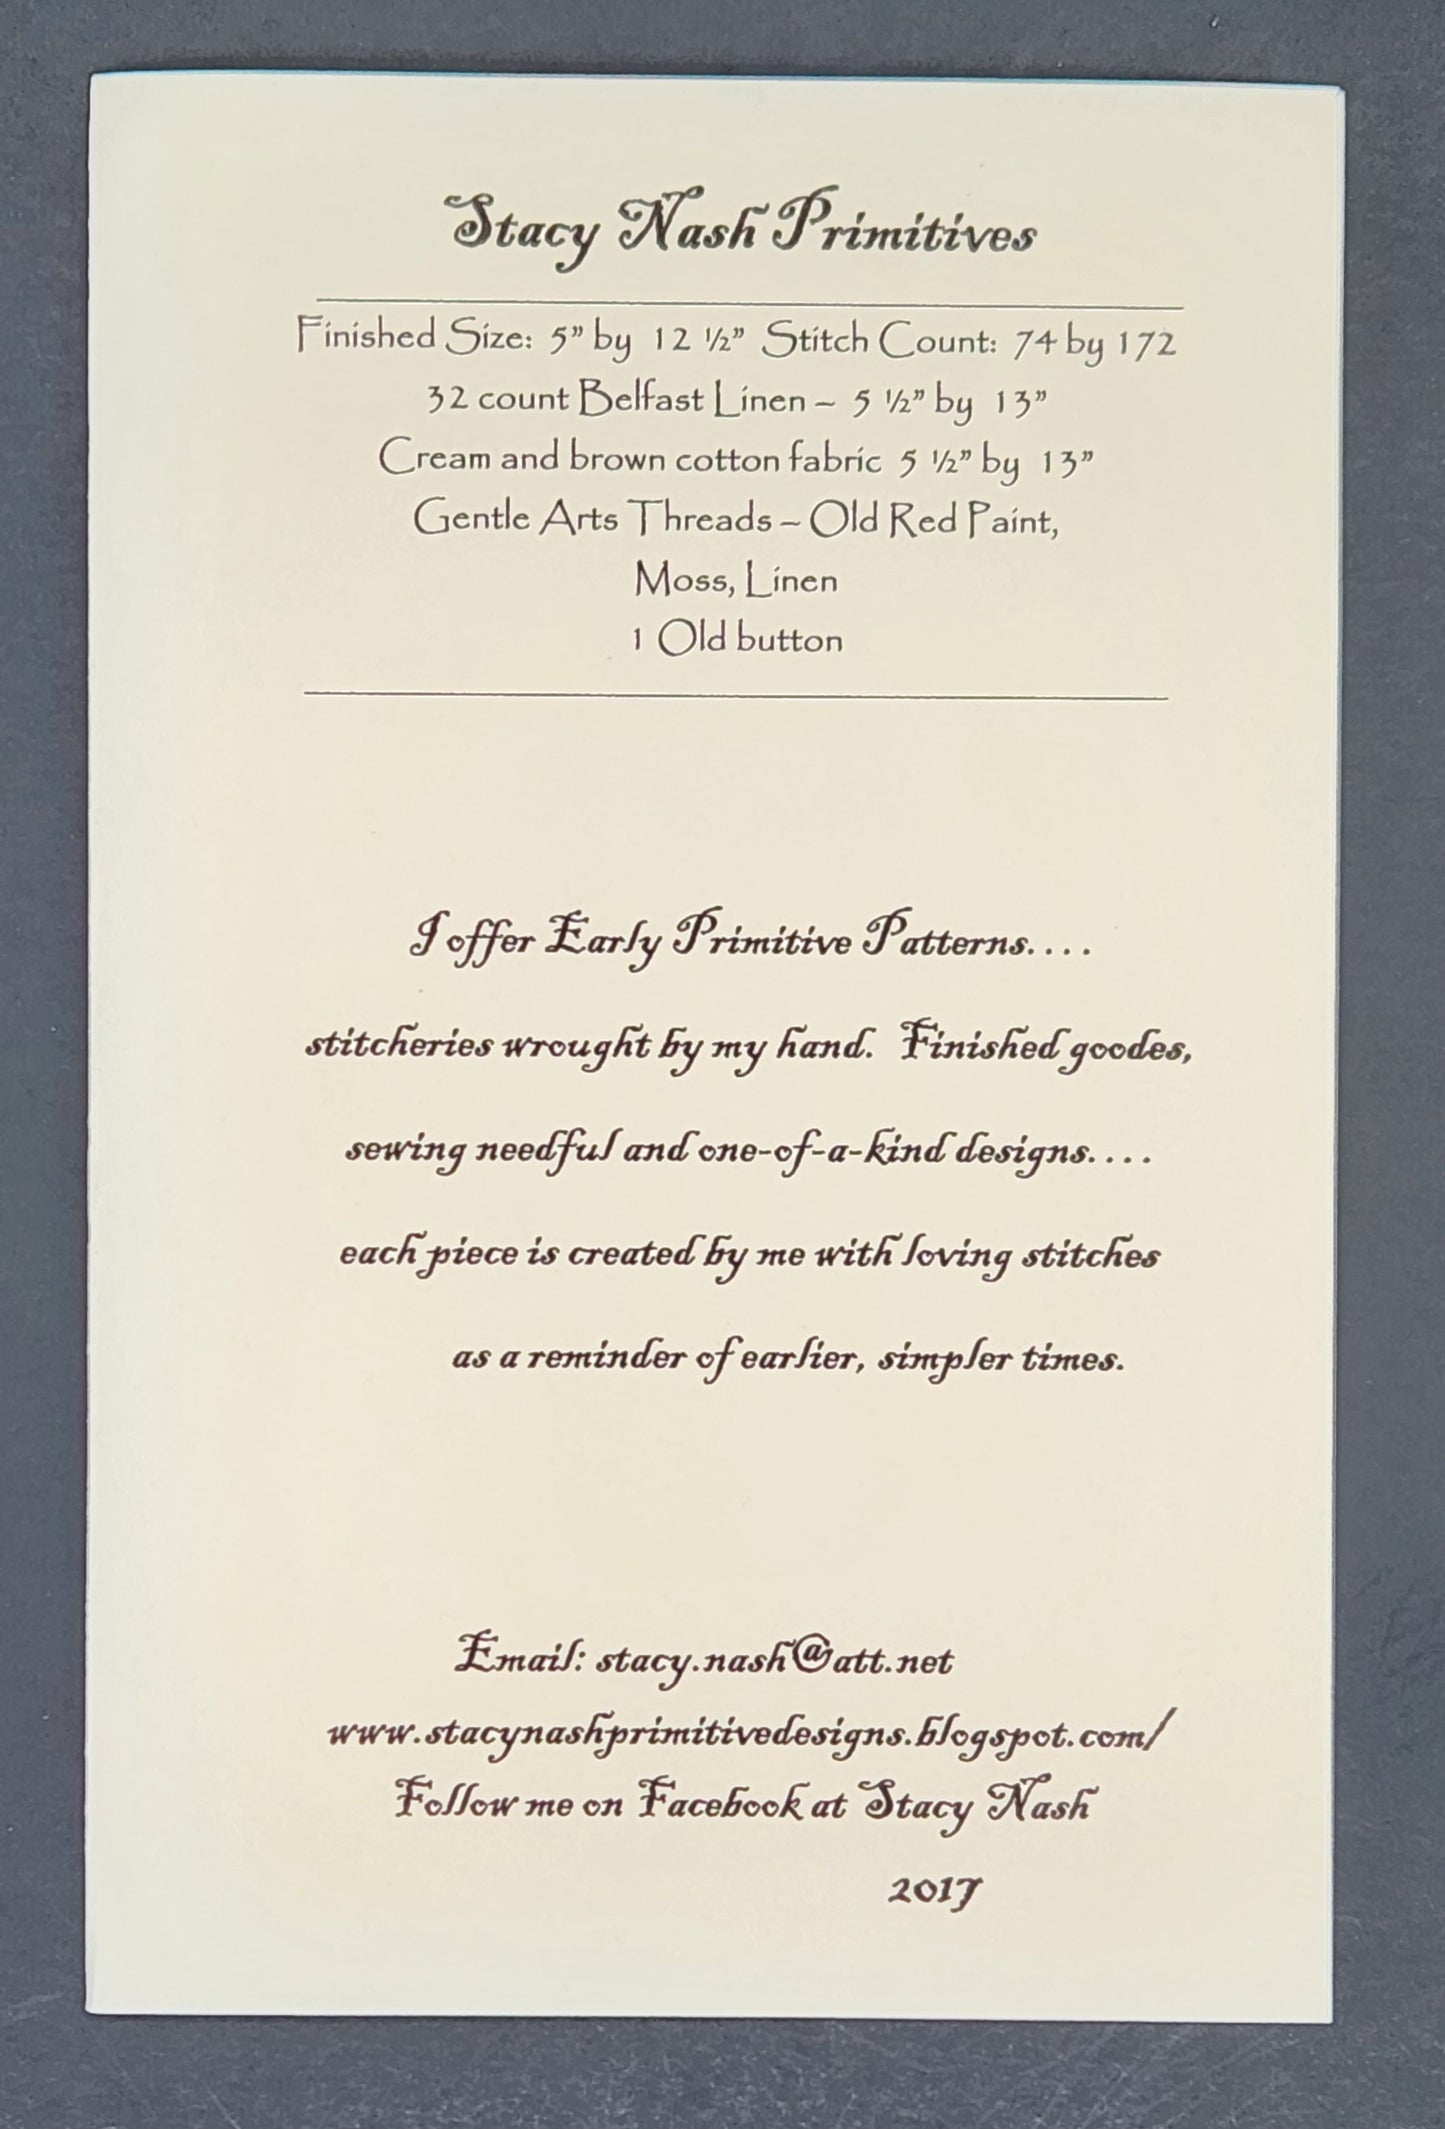 Stacy Nash Primitives
Finished Size: 5” by 12 ½” Stitch Count: 74 by 172
32 count Belfast Linen – 5 ½” by 13”
Cream and brown cotton fabric 5 ½” by 13”
Gentle Arts Threads – Old Red Paint,
Moss, Linen
1 Old button
I offer Early Primitive Patterns....
stitcheries wrought by my hand. Finished goodes,
sewing needful and one-of-a-kind designs....
each piece is created by me with loving stitches
as a reminder of earlier, simpler times.
Email: stacy.nash@att.net
www.stacynashprimitivedesigns.blogspot.com/
Follow me on Facebook at Stacy Nash
2017